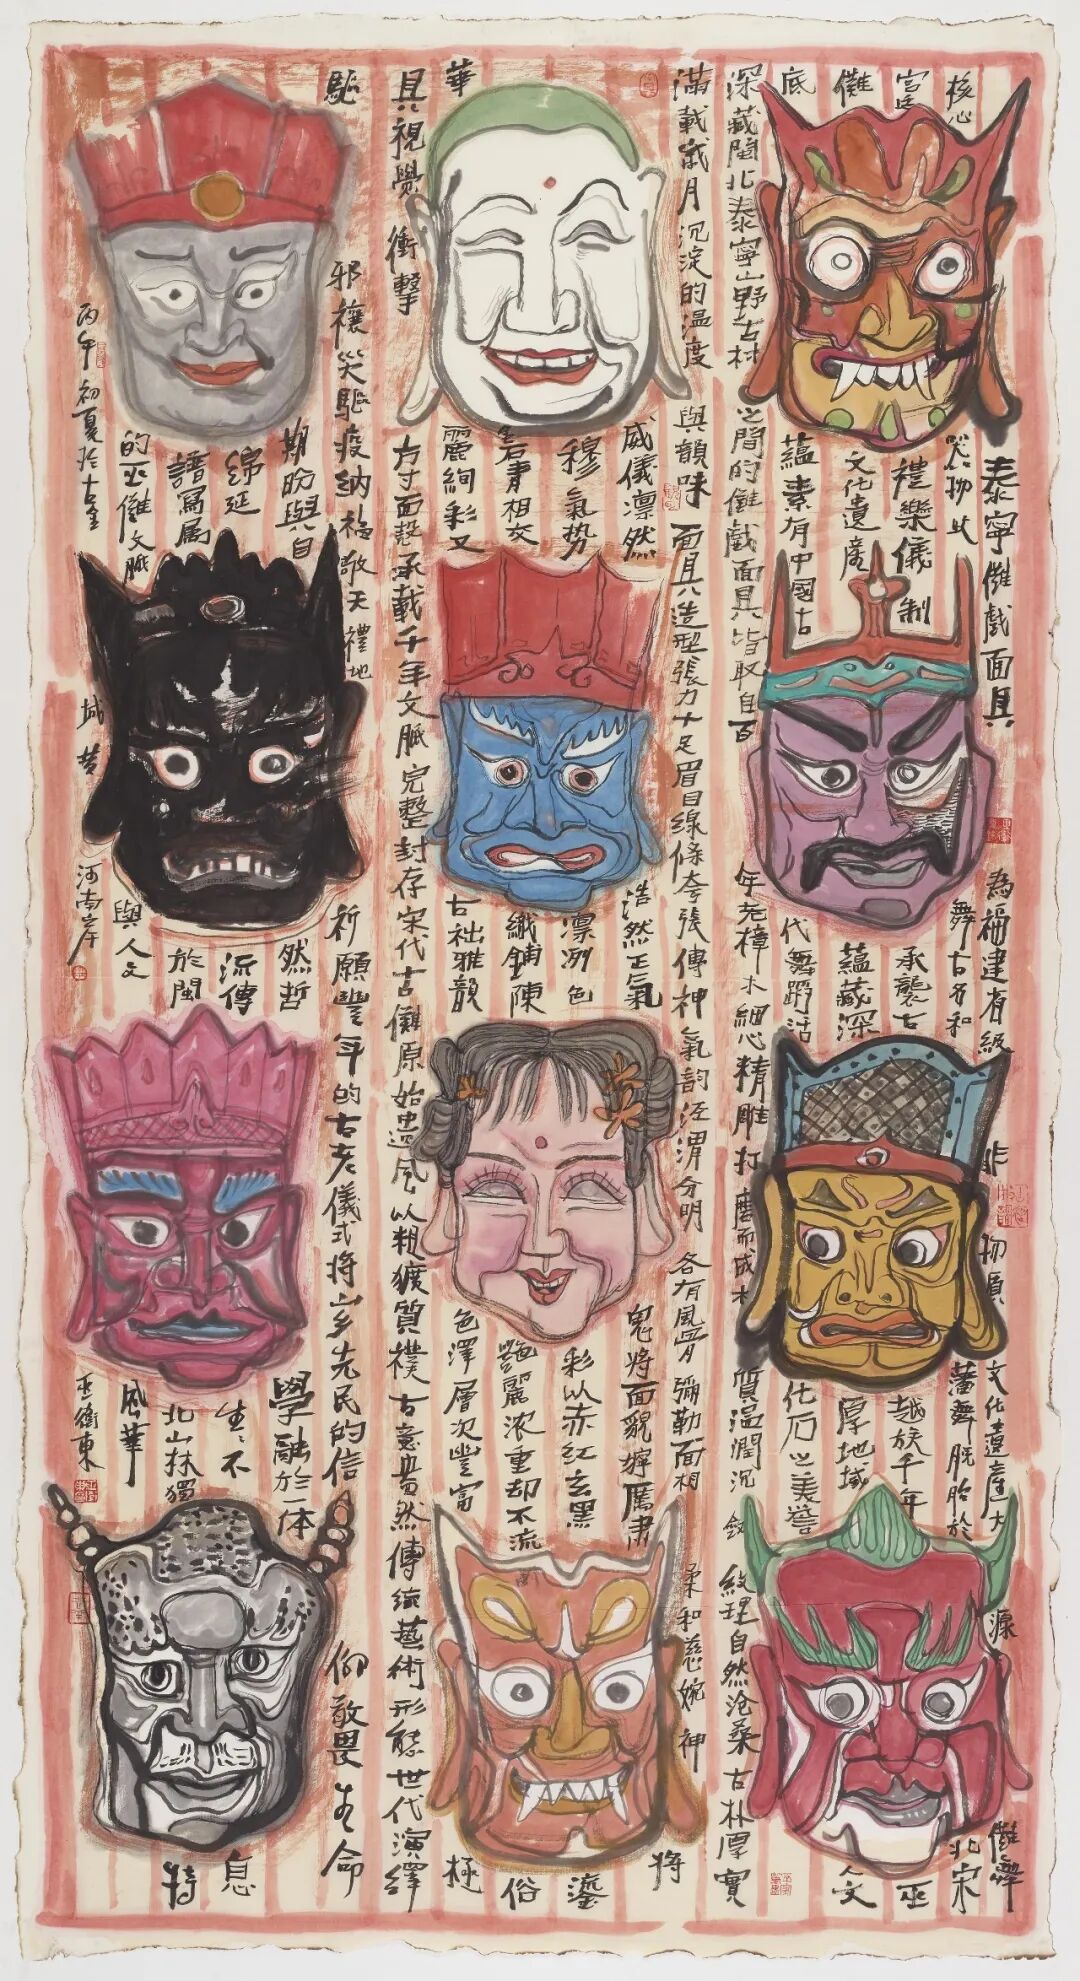 泰寧儺戲面具為福建省級非物質文化遺產大源儺舞
核心舞古名和藩舞脫胎於北宋
宮廷禮樂儀制承襲古越族千年巫
儺文化遺產蘊藏深厚地域人文
底蘊素有中國古代舞蹈活化石之美譽
深藏閩北泰寧山野古村之間的儺戲面具皆取自百年老樟木細心精雕打磨而成木質温潤沉斂紋理自然沧桑古朴厚實
滿載歲月沉淀的温度與韻味面具造型張力十足眉目線條夸張傳神氣韵涇渭分明各有風骨彌勒面相柔和慈婉神將
威儀凛然浩然正氣鬼將面貌獰厲肅
穆氣势凛冽色彩以赤紅玄黑鎏
岩青相交織鋪陳艷麗浓重却不流俗
華麗絢彩又古拙雅韻色澤層次豐富極
具視覺衝擊方寸面殼承載千年文脈完整封存宋代古儺原始遺風以粗獷質樸古意盎然傳統藝術形態世代演繹
驅邪禳災驅疫納福敬天禮地祈願豐年的古老儀式將山乡先民的信仰敬畏生命
期盼與自然哲學融於一体
綿延流傳生生不息
譜寫屬於閩北山林獨特
的巫儺文脈與人文風華
丙午初夏於古金城黄河南岸王衛東